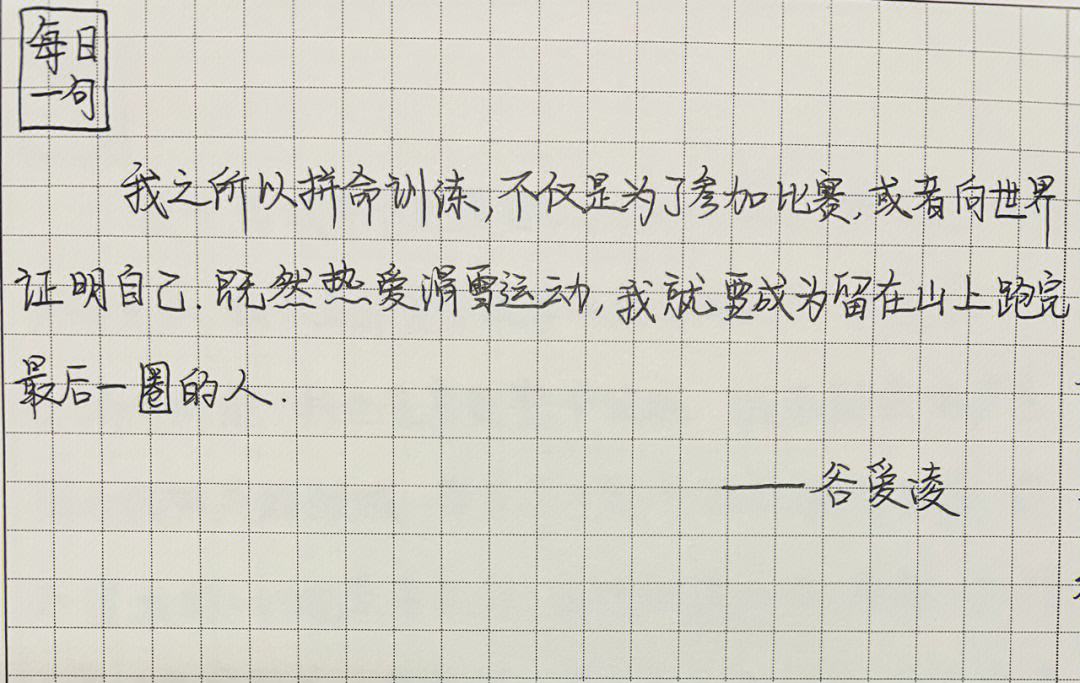 每日
一句
我之所以拼命训练,不仅是为了参加比赛,或者向世界
证明自己.既然热爱滑雪运动,我就要成为留在山上跑完
最后一圈的人.
——谷爱凌